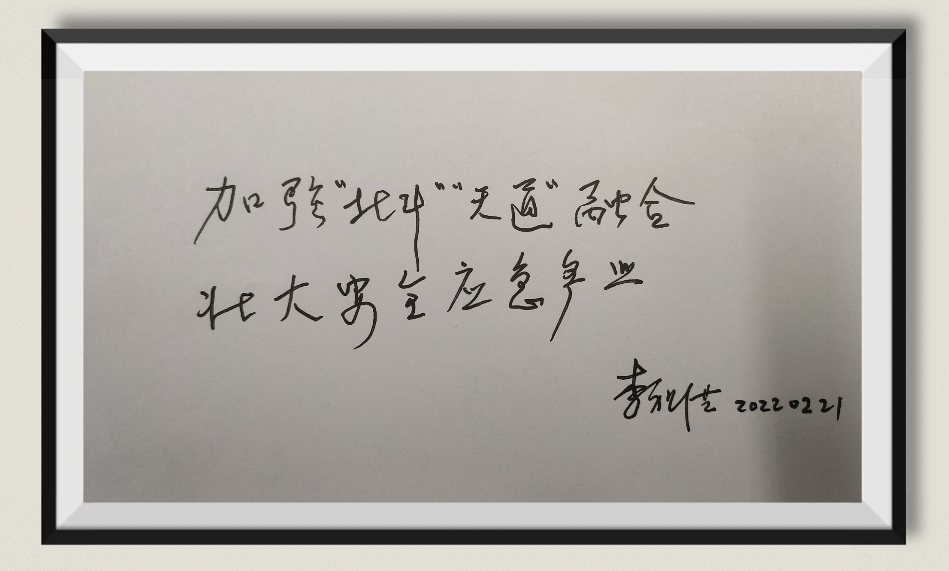 加强“北斗”“天通”融合
壮大安全应急产业
李 20220221